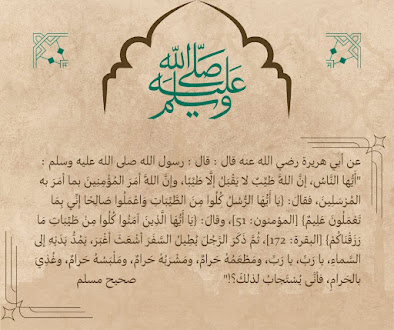 صلى الله عليه وسلم
عن أبي هريرة رضي الله عنه قال : قال : رسول الله صلى الله عليه وسلم :
"أَيُّهَا النَّاسُ، إنَّ اللهَ طَيِّبٌ لا يَقْبَلُ إلَّا طَيِّبًا، وإنَّ اللهَ أمَرَ المُؤْمِنِينَ بما أمَرَ به
المُرْسَلِينَ، فقالَ: {يَا أَيُّهَا الرُّسُلُ كُلُوا مِنَ الطَّيِّبَاتِ وَاعْمَلُوا صَالِحًا إنِّي بما
تَعْمَلُونَ عَلِيمٌ} [المؤمنون: 51]، وقالَ: {يَا أَيُّهَا الَّذِينَ آمَنُوا كُلُوا مِنْ طَيِّبَاتِ ما
رَزَقْنَاكُمْ} [البقرة: 172]، ثُمَّ ذَكَرَ الرَّجُلَ يُطِيلُ السَّفَرَ أشْعَثَ أغْبَرَ، يَمُدُّ يَدَيْهِ إلى
السَّماءِ، يا رَبِّ، يا رَبِّ، ومَطْعَمُهُ حَرامٌ، ومَشْرَبُهُ حَرامٌ، ومَلْبَسُهُ حَرامٌ، وغُذِيَ
بالحَرامِ، فأنَّى يُسْتَجابُ لذلكَ؟!" صحيح مسلم